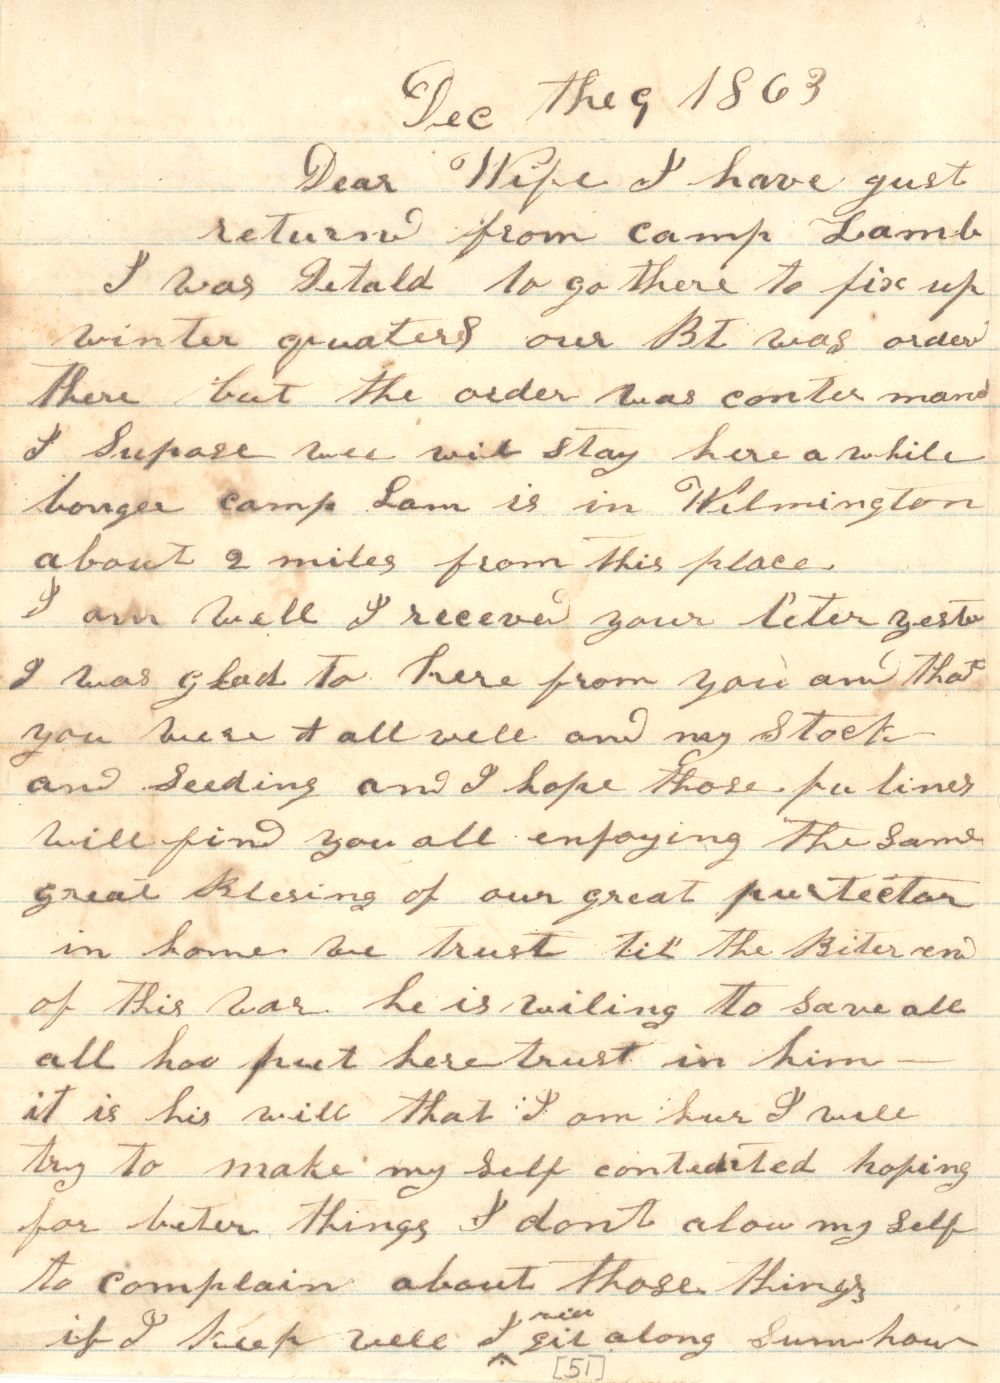 Dec the 9 1863
Dear Wife I have gust
returnd from camp Lamb
I was Detald to go there to fix up
winter quaters our Bt was order
there but the order was conter mand
I Supose wee wil stay here a while
longer camp Lam is in Wilmington
about 2 miles from this place.
I am well I receved your leter yester
I was glad to here from you and that
you were all well and my Stock
and Seeding and I hope those fu lines
will find you all enjoying the same
great Blesing of our great purtector
in home we trust til the Biter end
of this war he is wiling to save all
all hoo put here trust in him —
it is his will that I am hur I will
try to make my self contented hoping
for beter things I dont alow my self
to complain about those things
if I keep well I will git along Sum how
[51]